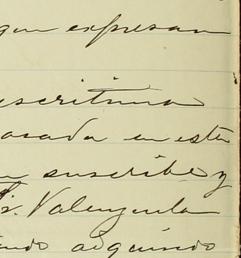 que expresan
escritura
pasada en este
suscribe y
Valenzuela
adquirido